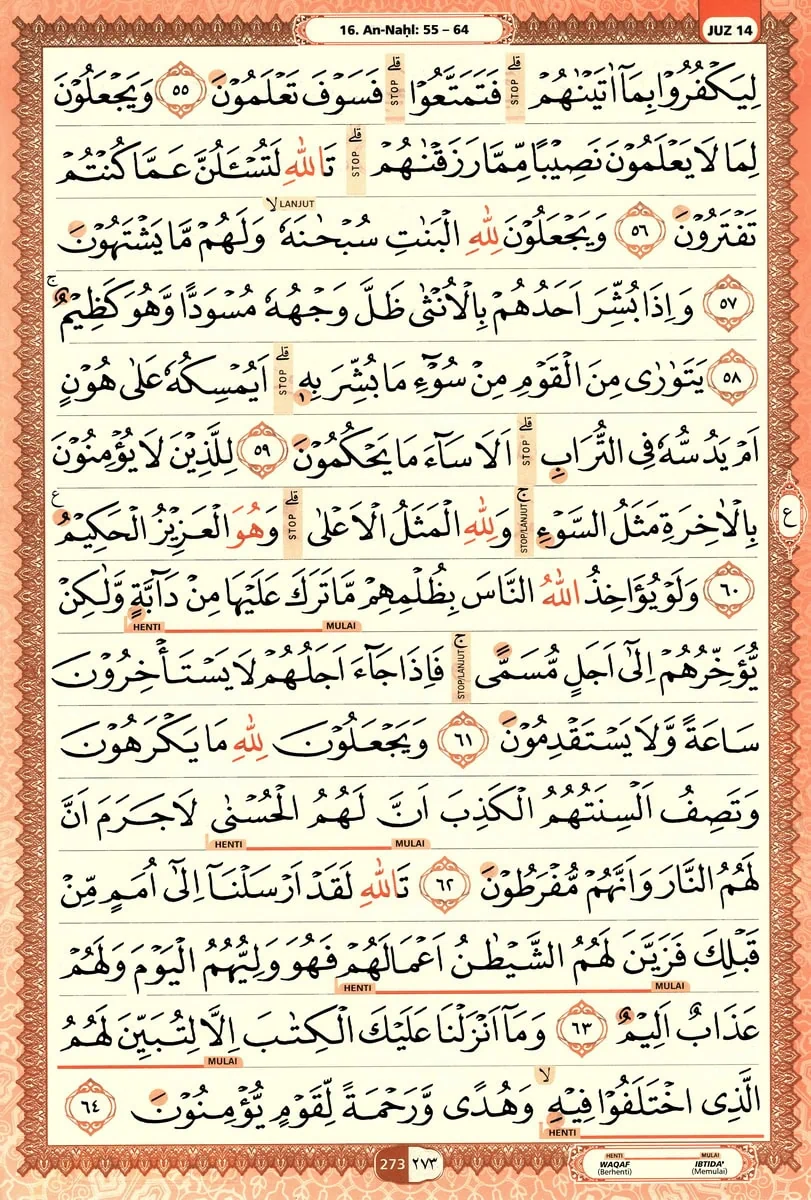 16. An-Naḥl: 55 – 64
JUZ 14
لِيَكْفُرُوْا بِمَآ اٰتَيْنٰهُمْ ۗ STOP فَتَمَتَّعُوْا ۗ STOP فَسَوْفَ تَعْلَمُوْنَ ٥٥ وَيَجْعَلُوْنَ
لِمَا لَا يَعْلَمُوْنَ نَصِيْبًا مِّمَّا رَزَقْنٰهُمْ ۗ STOP تَاللّٰهِ لَتُسْـَٔلُنَّ عَمَّا كُنْتُمْ
تَفْتَرُوْنَ ٥٦ وَيَجْعَلُوْنَ لِلّٰهِ الْبَنٰتِ سُبْحٰنَهٗ ۙ LANJUT وَلَهُمْ مَّا يَشْتَهُوْنَ
٥٧ وَاِذَا بُشِّرَ اَحَدُهُمْ بِالْاُنْثٰى ظَلَّ وَجْهُهٗ مُسْوَدًّا وَّهُوَ كَظِيْمٌ ۚ
٥٨ يَتَوٰرٰى مِنَ الْقَوْمِ مِنْ سُوْۤءِ مَا بُشِّرَ بِهٖ ۗ STOP اَيُمْسِكُهٗ عَلٰى هُوْنٍ
اَمْ يَدُسُّهٗ فِى التُّرَابِ ۗ STOP اَلَا سَاۤءَ مَا يَحْكُمُوْنَ ٥٩ لِلَّذِيْنَ لَا يُؤْمِنُوْنَ
بِالْاٰخِرَةِ مَثَلُ السَّوْءِ ۚ STOP/LANJUT وَلِلّٰهِ الْمَثَلُ الْاَعْلٰى ۗ STOP وَهُوَ الْعَزِيْزُ الْحَكِيْمُ ࣖ
ع
٦٠ وَلَوْ يُؤَاخِذُ اللّٰهُ النَّاسَ بِظُلْمِهِمْ مَّا تَرَكَ عَلَيْهَا مِنْ دَاۤبَّةٍ وَّلٰكِنْ
MULAI HENTI
يُّؤَخِّرُهُمْ اِلٰٓى اَجَلٍ مُّسَمًّىۚ STOP/LANJUT فَاِذَا جَاۤءَ اَجَلُهُمْ لَا يَسْتَأْخِرُوْنَ
سَاعَةً وَّلَا يَسْتَقْدِمُوْنَ ٦١ وَيَجْعَلُوْنَ لِلّٰهِ مَا يَكْرَهُوْنَ
وَتَصِفُ اَلْسِنَتُهُمُ الْكَذِبَ اَنَّ لَهُمُ الْحُسْنٰى لَا جَرَمَ اَنَّ
MULAI HENTI
لَهُمُ النَّارَ وَاَنَّهُمْ مُّفْرَطُوْنَ ٦٢ تَاللّٰهِ لَقَدْ اَرْسَلْنَآ اِلٰٓى اُمَمٍ مِّنْ
قَبْلِكَ فَزَيَّنَ لَهُمُ الشَّيْطٰنُ اَعْمَالَهُمْ فَهُوَ وَلِيُّهُمُ الْيَوْمَ وَلَهُمْ
MULAI HENTI
عَذَابٌ اَلِيْمٌ ٦٣ وَمَآ اَنْزَلْنَا عَلَيْكَ الْكِتٰبَ اِلَّا لِتُبَيِّنَ لَهُمُ
MULAI
الَّذِى اخْتَلَفُوْا فِيْهِۙ وَهُدًى وَّرَحْمَةً لِّقَوْمٍ يُّؤْمِنُوْنَ ٦٤
HENTI
273 ٢٧٣
HENTI MULAI
WAQAF IBTIDA'
(Berhenti) (Memulai)